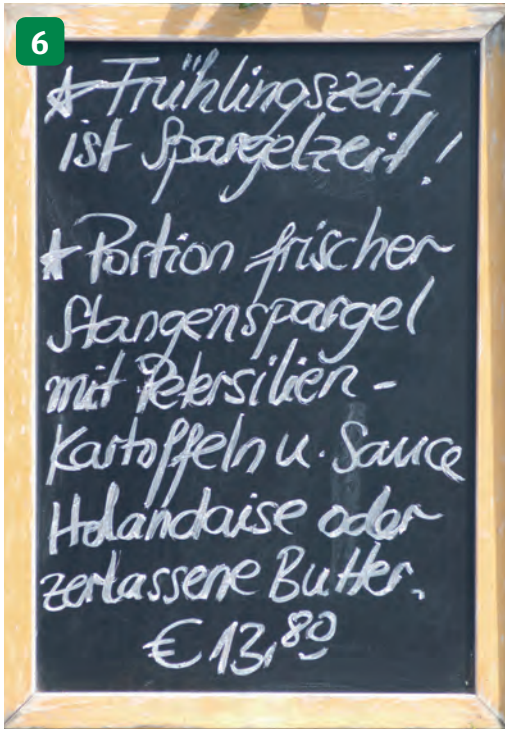 6
* Frühlingszeit
ist Spargelzeit!
* Portion frischer
Stangenspargel
mit Petersilien-
Kartoffeln u. Sauce
Holandaise oder
zerlassene Butter.
€ 13,80